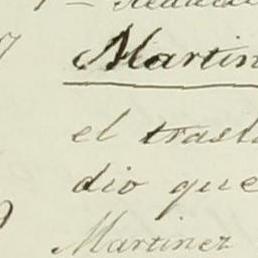 Martin
el trasl
dio que
Martinez